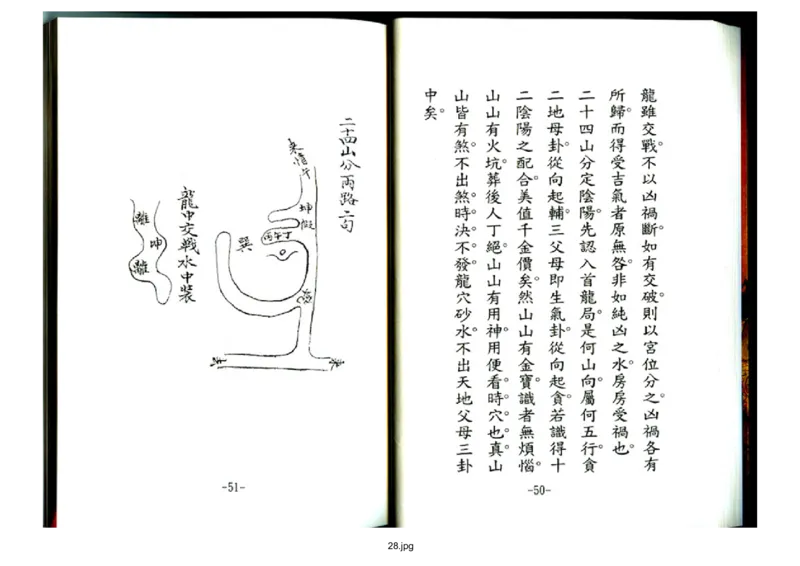 龍雖交戰。不以凶禍斷。如有交破。則以宮位分之。凶禍各有
所歸。而得受吉氣者原無咎。非如純凶之水。房房受禍也。
二十四山分定陰陽。先認入首龍局。是何山向。屬何五行。貪
二地母卦。從向起輔。三父母即生氣卦。從向起貪。若識得十
二陰陽之配合。美值千金價矣。然山山有金寶。識者無煩惱。
山山有火坑。葬後人丁絕。山山有用神。用便看時。穴也。真山
山皆有煞。不出煞時。決不發。龍穴砂水。不出天地父母三卦
中矣。
-50-
二十四山分兩路二句
坤
巽
丙午丁
龍中交戰水中裝
離
坤
離
-51-
28.jpg